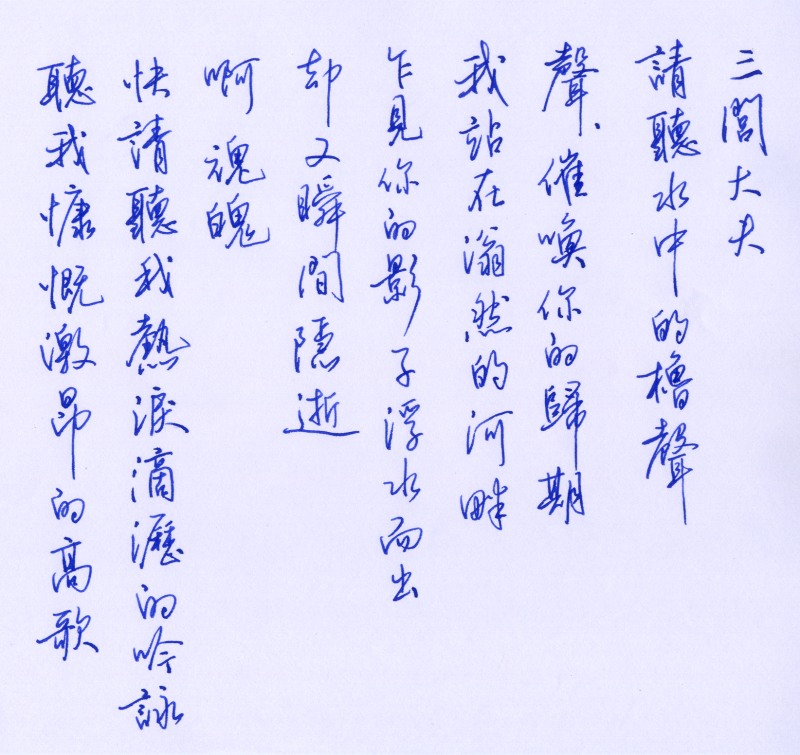 三閭大夫
請聽水中的櫓聲
聲聲催喚你的歸期
我站在滃然的河畔
乍見你的影子浮水而出
却又瞬間隱逝
啊魂魄
快請聽我熱淚滴瀝的吟詠
聽我慷慨激昂的高歌